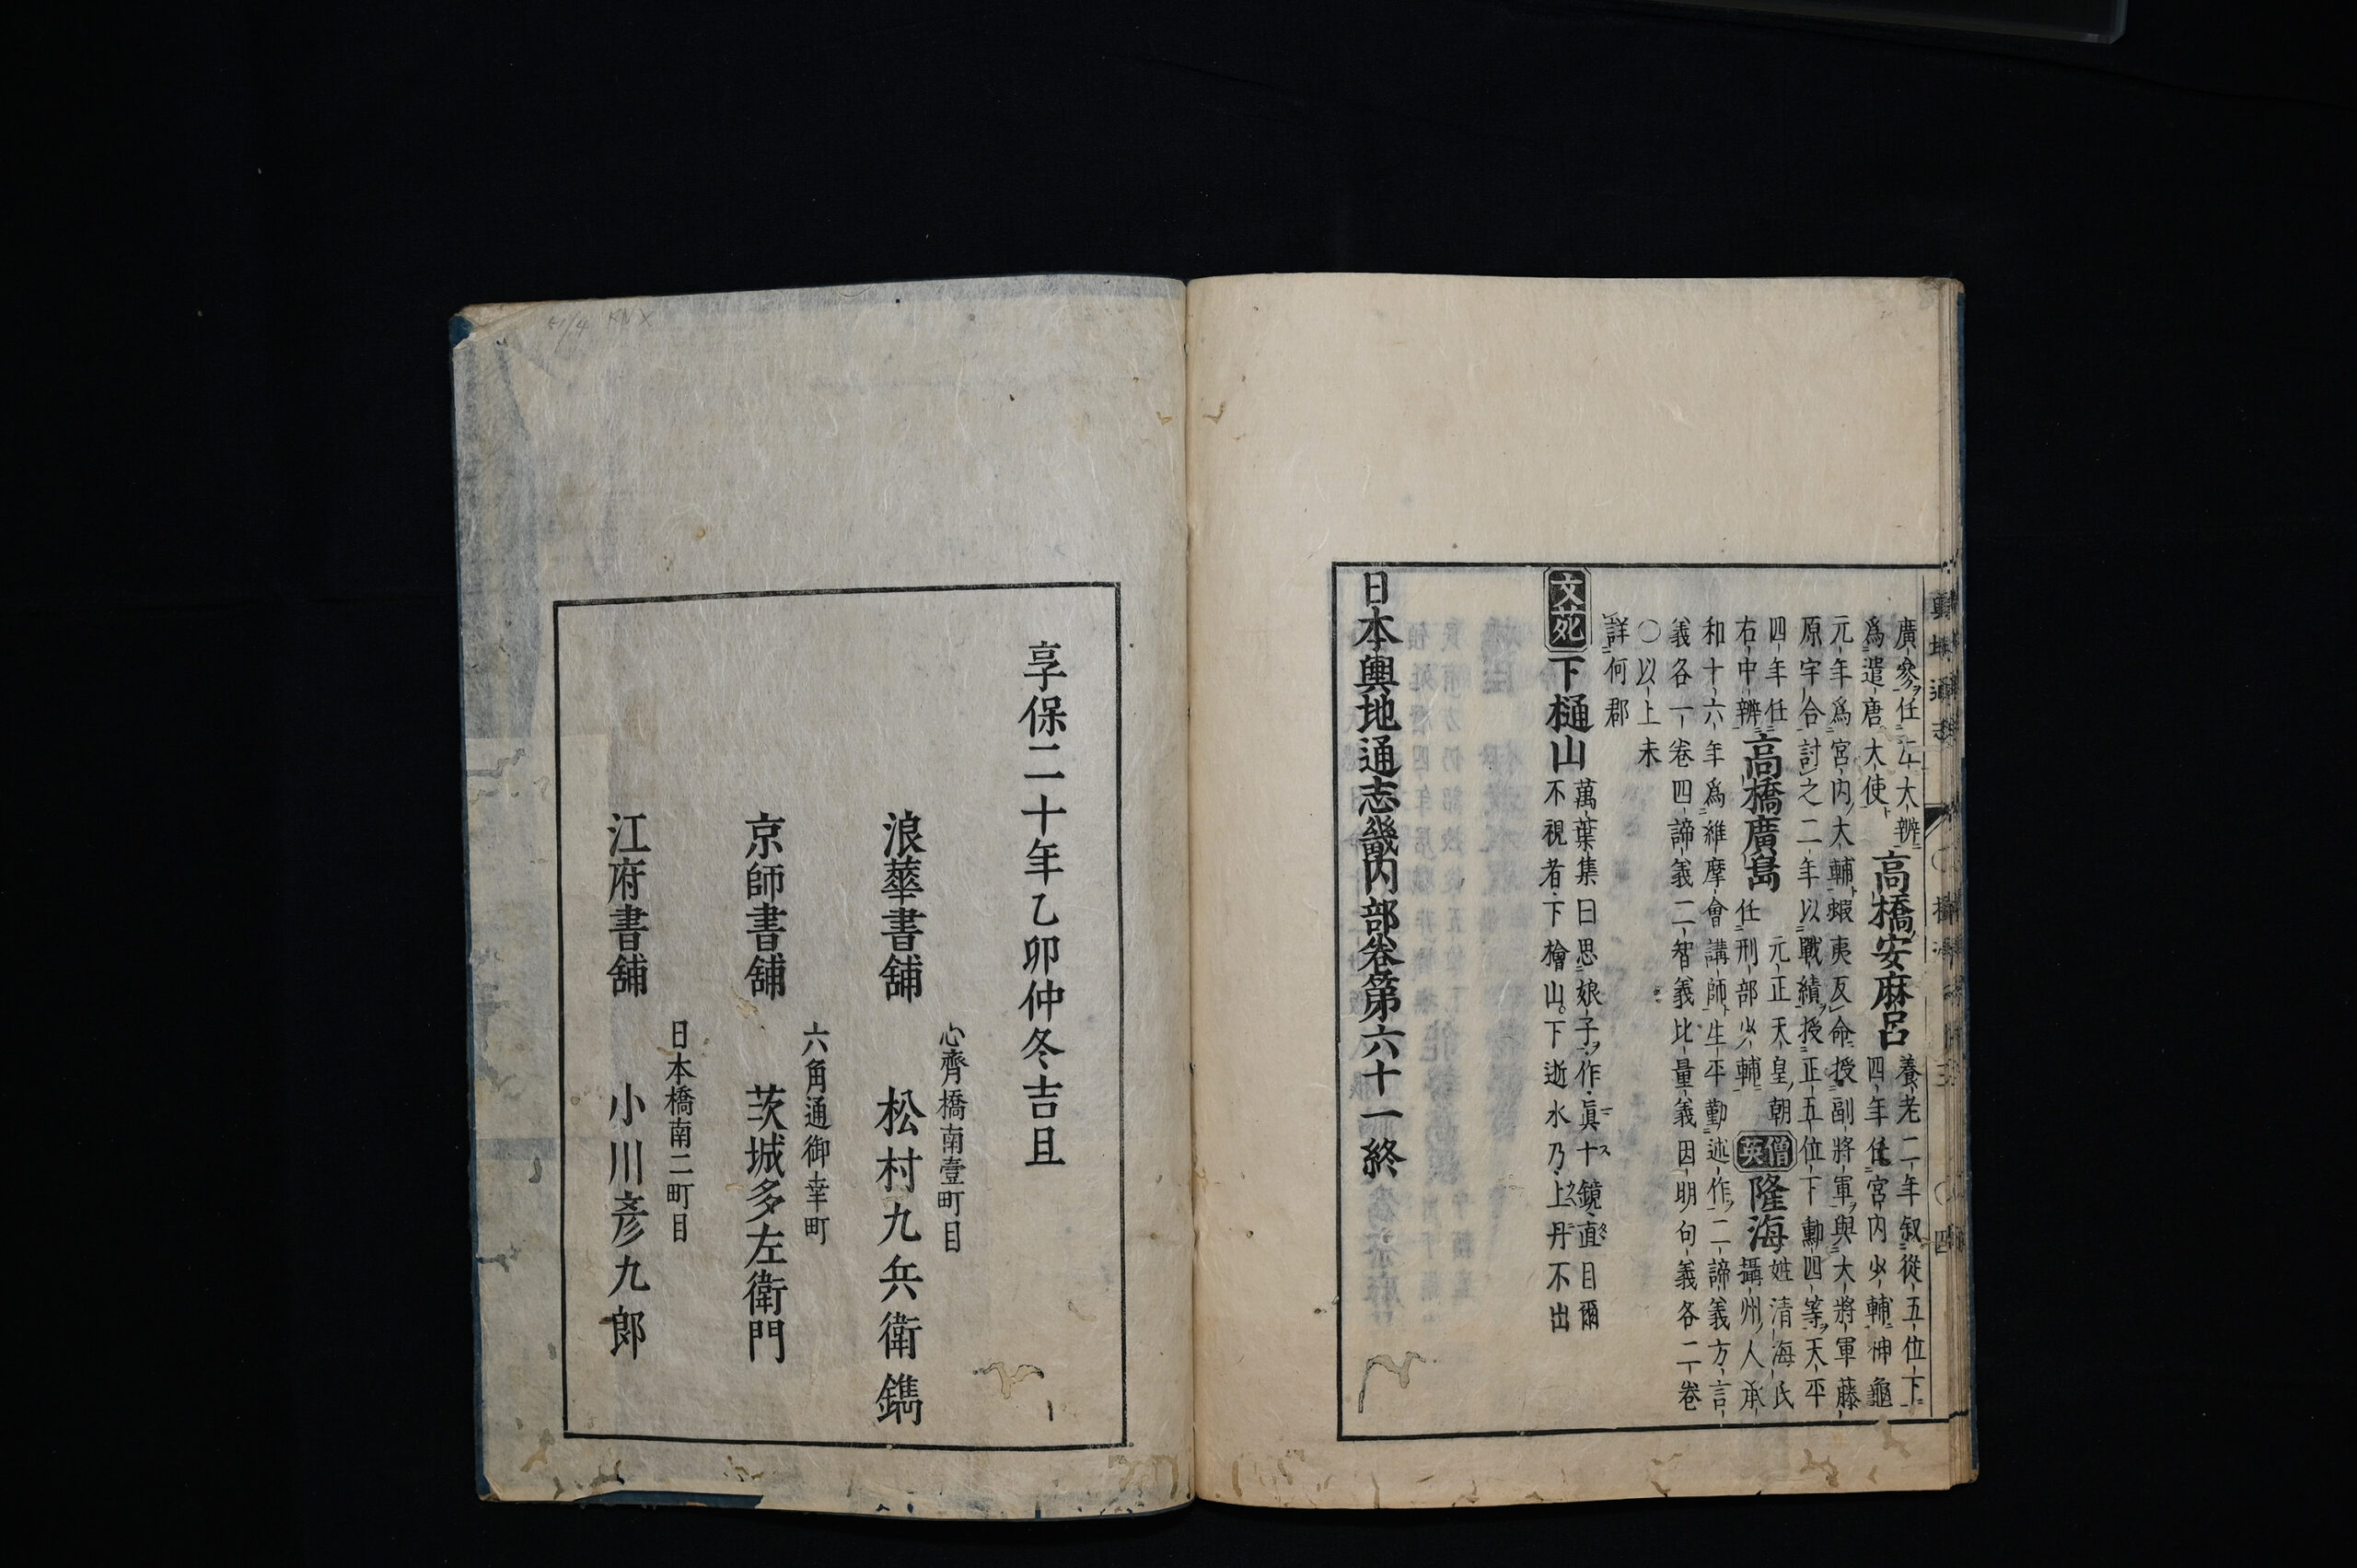 廣參任左大辨
爲遣唐大使
高橋安麻呂
養老二年叙從五位下
四年任宮内少輔神龜
元年爲宮内大輔蝦夷反命授副將軍與大將軍藤
原宇合討之二年以戰績授正五位下勳四等天平
四年任
右中辨
高橋廣島
元正天皇朝
任刑部少輔
僧英
隆海
姓清海氏
攝州人承
和十六年爲維摩會講師生平勤述作二諦義方言
義各一卷四諦義二智義比量義因明句義各二卷
〇以上未
詳何郡
文苑
下樋山
萬葉集曰思娘子作眞十鏡直目爾
不視者下檜山下逝水乃上丹不出
日本輿地通志畿内部卷第六十一終
享保二十年乙卯仲冬吉旦
心齊橋南壹町目
浪華書舖 松村九兵衛 鐫
六角通御幸町
京師書舖 茨城多左衛門
日本橋南二町目
江府書舖 小川彥九郎